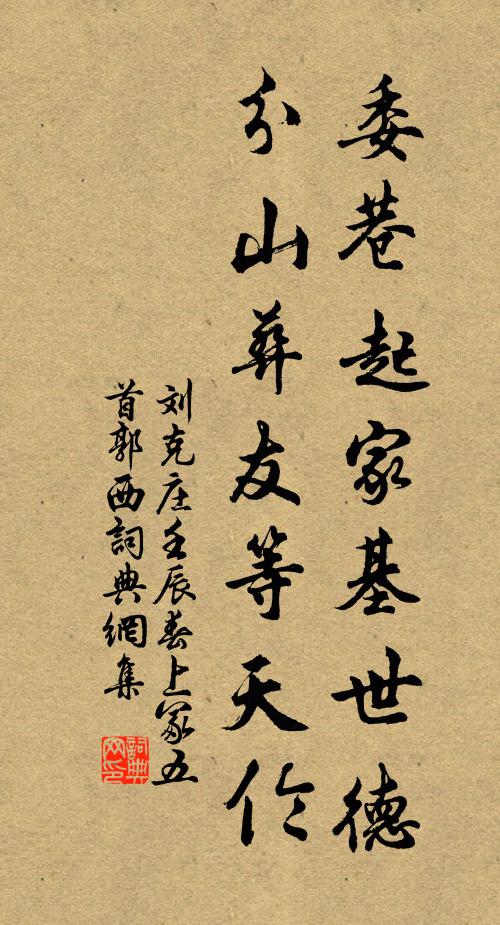 委巷起家基世德
分山葬友等天伦
刘克庄壬辰春上冢五
首郭西詞典網集
詞典
网印